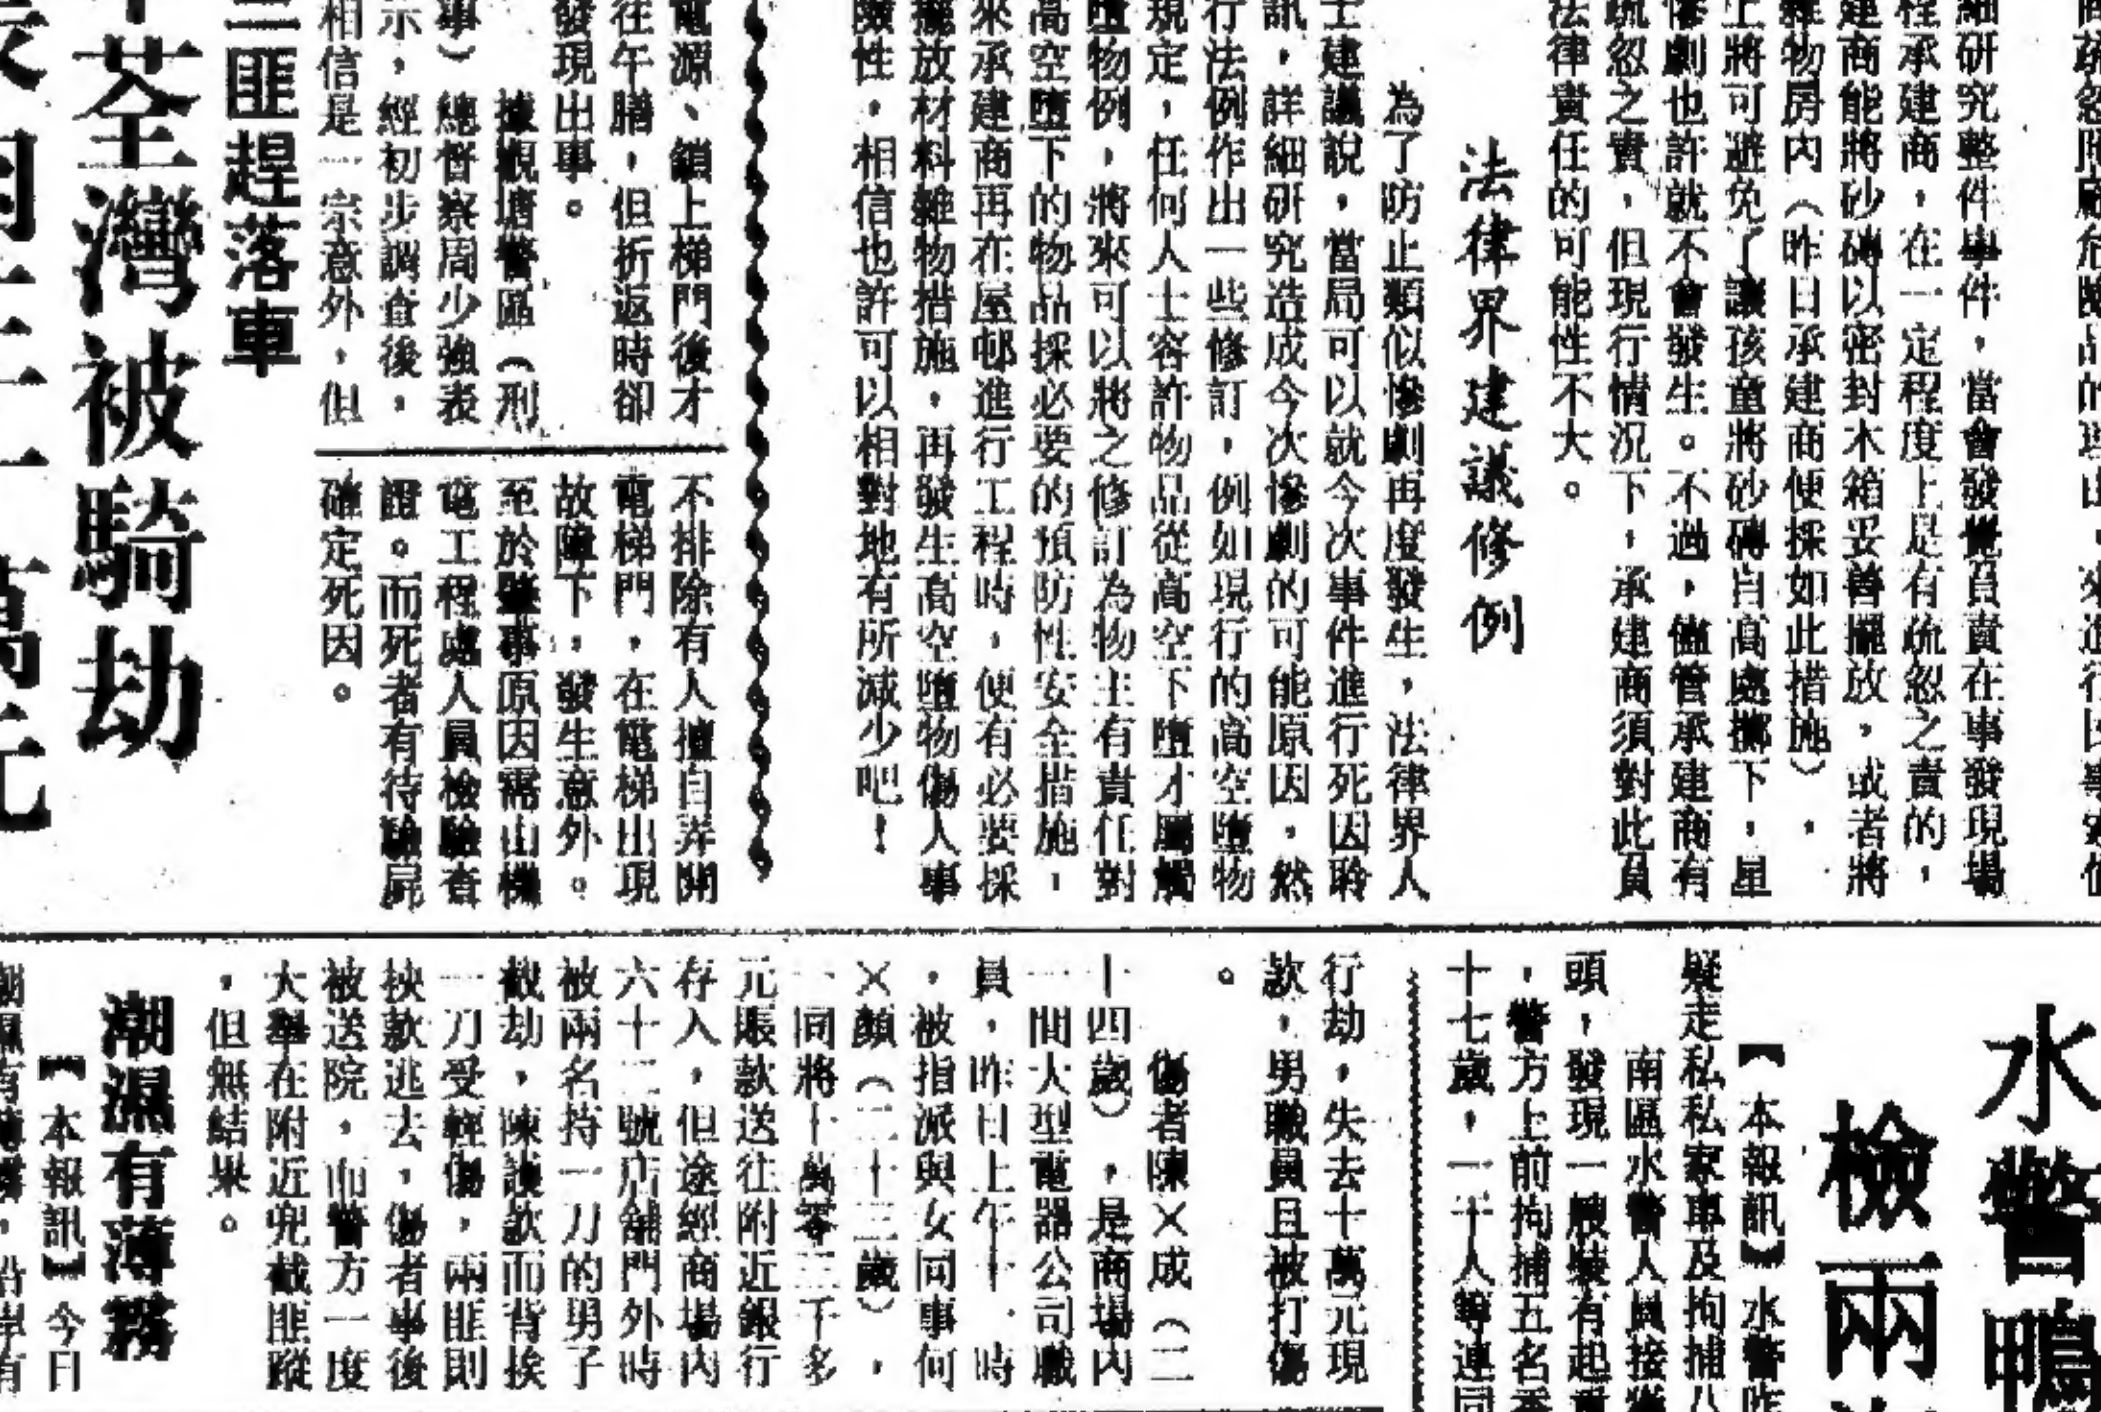 細研究整件事件，當會發覺負責在事發現場
程承建商，在一定程度上是有疏忽之責的，
建商能將砂磚以密封木箱妥善擺放，或者將
雜物房內（昨日承建商便採如此措施），
上將可避免了讓孩童將砂磚自高處擲下，星
慘劇也許就不會發生。不過，儘管承建商有
疏忽之責，但現行情况下，承建商須對此負
法律責任的可能性不大。
法律界建議修例
為了防止類似慘劇再度發生，法律界人
士建議說，當局可以就今次事件進行死因聆
訊，詳細研究造成今次慘劇的可能原因，然
行法例作出一些修訂，例如現行的高空墮物
規定，任何人士容許物品從高空下墮才屬觸
墮物例，將來可以將之修訂為物主有責任對
高空墮下的物品採必要的預防性安全措施，
來承建商再在屋邨進行工程時，便有必要採
擺放材料雜物措施，再發生高空墮物傷人事
險性，相信也許可以相對地有所減少吧！
電源、鎖上梯門後才
往午膳，但折返時卻
發現出事。
據觀塘警區（刑
事）總督察周少強表
示，經初步調查後，
相信是一宗意外，但
不排除有人擅自弄開
電梯門，在電梯出現
故障下，發生意外。
至於肇事原因需由機
電工程處人員檢驗查
證。而死者有待驗屍
確定死因。
三匪趕落車
荃灣被騎劫
水警
檢兩
【本報訊】水警昨
疑走私私家車及拘捕八
南區水警人員接獲
頭，發現一艘裝有起重
，警方上前拘捕五名
十七歲，一干人等連同
行劫，失去十萬元現
款，男職員且被打傷
。
傷者陳×成（二
十四歲），是商場內
一間大型電器公司職
員，昨日上午十一時
，被指派與女同事何
×顏（二十三歲），
一同將十萬零三千多
元賬款送往附近銀行
存入，但途經商場內
六十二號店舖門外時
被兩名持一刀的男子
截劫，陳護款而背挨
一刀受輕傷，兩匪則
挾款逃去，傷者事後
被送院，而警方一度
大舉在附近兜截匪蹤
，但無結果。
潮濕有薄霧
【本報訊】今日